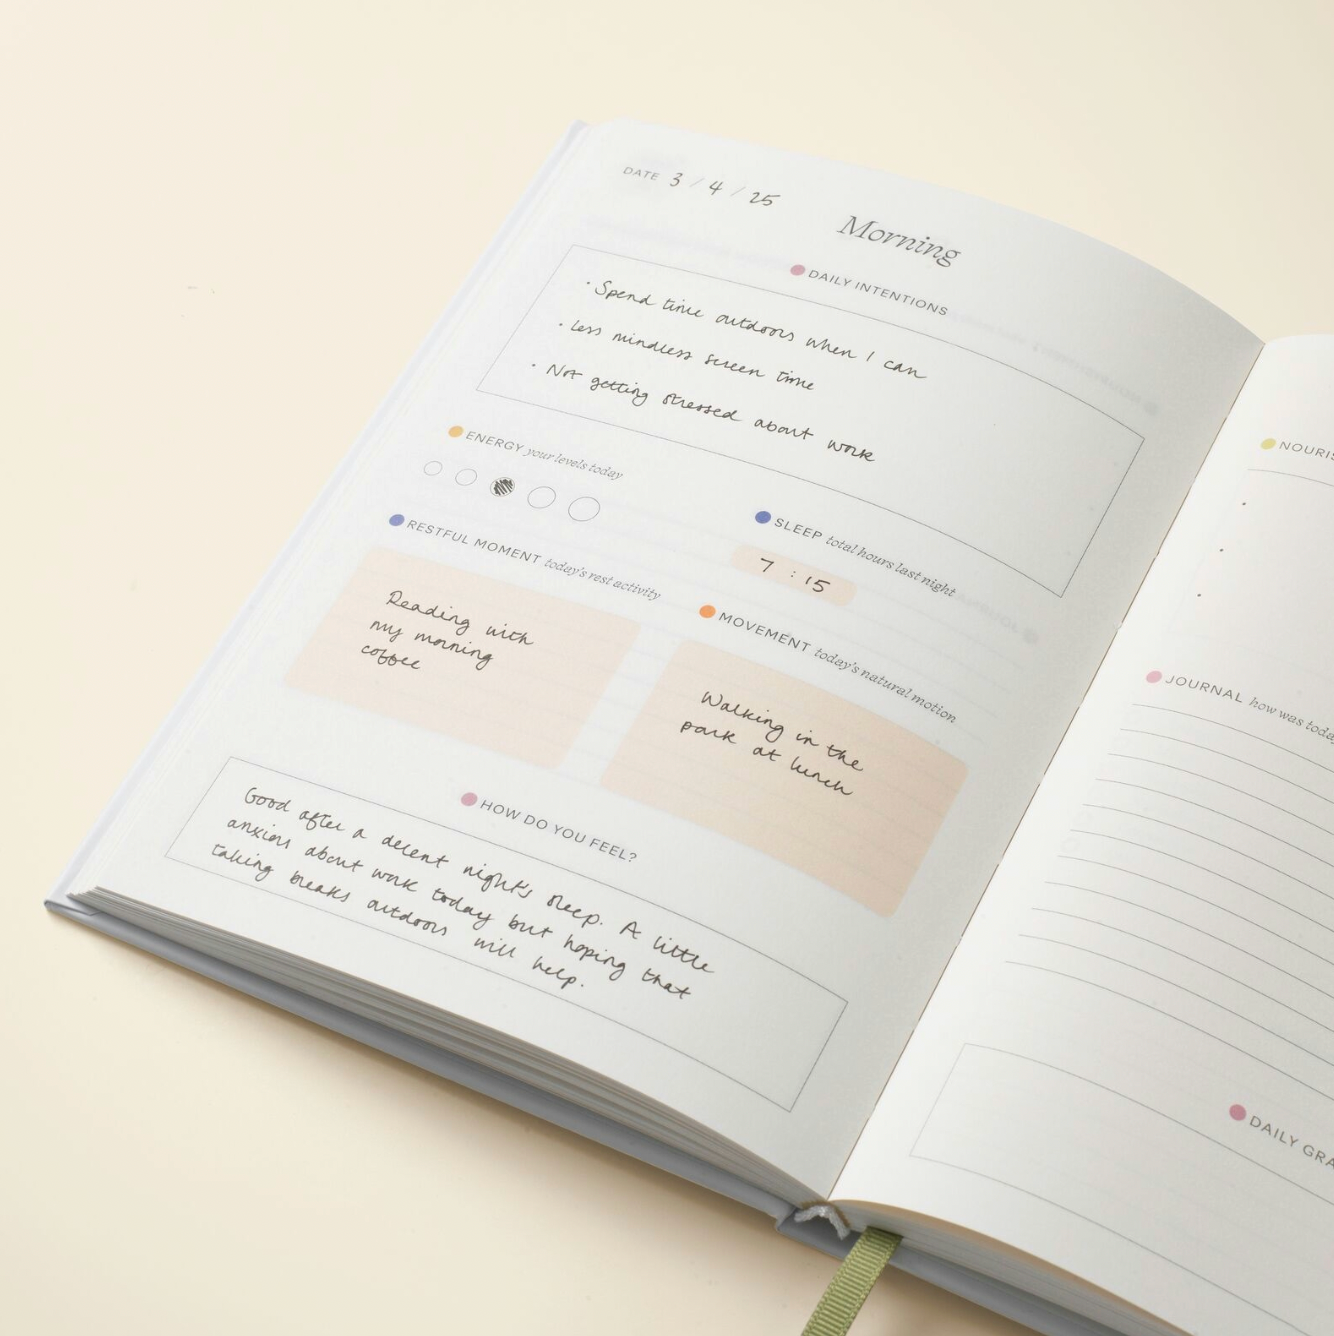 DATE 3 / 4 / 25
Morning
DAILY INTENTIONS
· Spend time outdoors when I can
· Less mindless screen time
· Not getting stressed about work
ENERGY your levels today
SLEEP total hours last night
7 : 15
RESTFUL MOMENT today's rest activity
Reading with
my morning
coffee
MOVEMENT today's natural motion
Walking in the
park at lunch
HOW DO YOU FEEL?
Good after a decent night's sleep. A little
anxious about work today but hoping that
taking breaks outdoors will help.
JOURNAL how was
DAILY